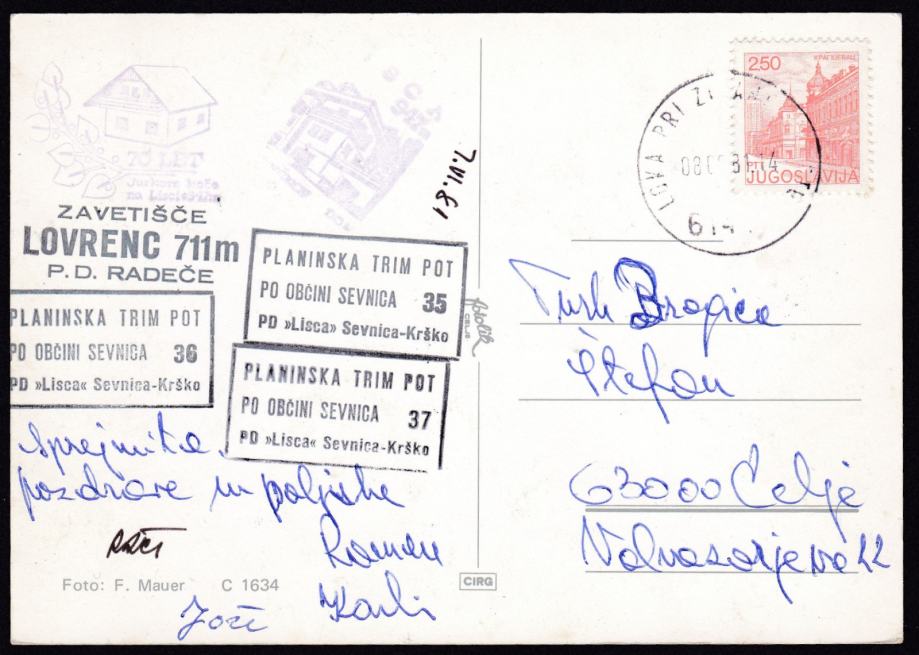 70 LET
Jurkova koča
na Lisci
7. VI. 81
ZAVETIŠČE
LOVRENC 711m
P.D. RADEČE
PLANINSKA TRIM POT
PO OBČINI SEVNICA 35
PD »Lisca« Sevnica-Krško
PLANINSKA TRIM POT
PO OBČINI SEVNICA 36
PD »Lisca« Sevnica-Krško
PLANINSKA TRIM POT
PO OBČINI SEVNICA 37
PD »Lisca« Sevnica-Krško
Sprejmite
pozdrave in poljube
Roman
Karli
Joži
Foto: F. Mauer C 1634
CELJE
CIRG
2,50
КРАГУЈЕВАЦ
PTT
JUGOSLAVIJA
LOKA PRI ZIDANEM
81.14
Turk Dragica
Štefan
63000 Celje
Valvasorjeva 22